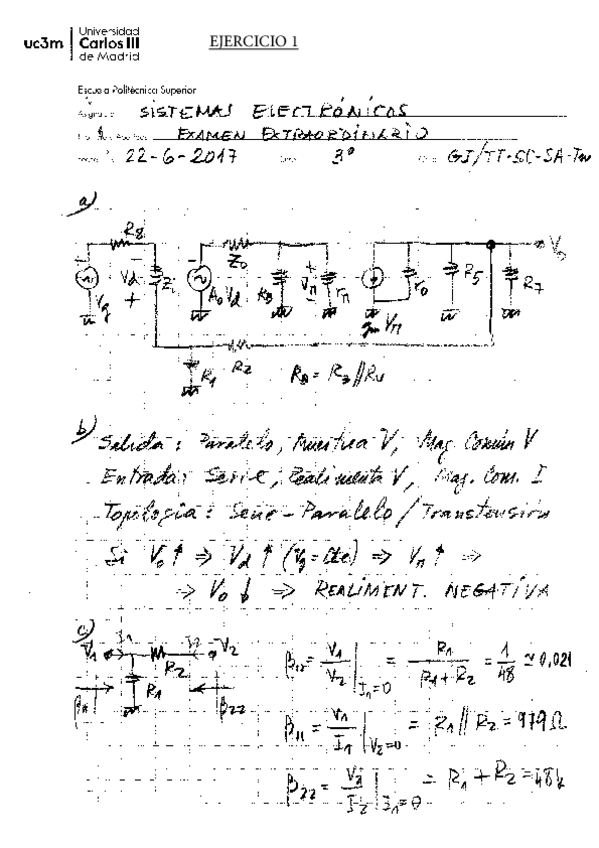 uc3m Universidad Carlos III de Madrid
EJERCICIO 1
Escuela Politécnica Superior
SISTEMAS ELECTRÓNICOS
EXAMEN EXTRAORDINARIO
22-6-2017 3º GI/TT-SC-SA-Tm
a)
R8 Z0 V0
Vg Vd Zi A0Vd RB Vπ rπ gmVπ r0 R5 R7
R1 R2 RB = R3//Rv
b) Salida: Paralelo, Muestrea V, Mag. Común V
Entrada: Serie, Realimenta V, Mag. Com. I
Topología: Serie-Paralelo / Transtensión
Si V0↑ ⇒ Vd↑ (Vg=Cte) ⇒ Vπ↑ ⇒
⇒ V0↓ ⇒ REALIMENT. NEGATIVA
c)
V1 I1 I2 V2
R2
R1
β11 β22
β12 = V1/V2 |I1=0 = R1/(R1+R2) = 1/48 ≃ 0,021
β11 = V1/I1 |V2=0 = R1//R2 = 979Ω
β22 = V2/I2 |I1=0 = R1+R2 = 48k